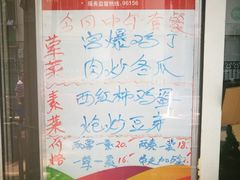 服务监督热线:96156
今日中午套餐
荤菜 宫爆鸡丁
肉炒冬瓜
素菜 西红柿鸡蛋
炝炒豆芽
价格 两荤一素20.- 两素一荤18.-
一荤一素16.-